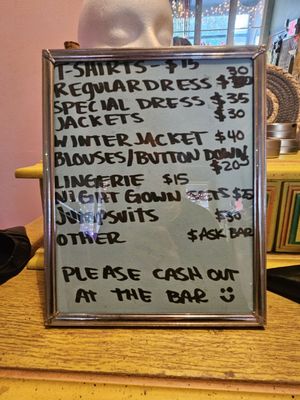 T-SHIRTS - $15
REGULAR DRESS $30
SPECIAL DRESS $35
JACKETS $30
WINTER JACKET $40
BLOUSES/BUTTON DOWN
$20
LINGERIE $15
NIGHT GOWN SETS $25
JUMPSUITS $30
OTHER $ASK BAR
PLEASE CASH OUT
AT THE BAR